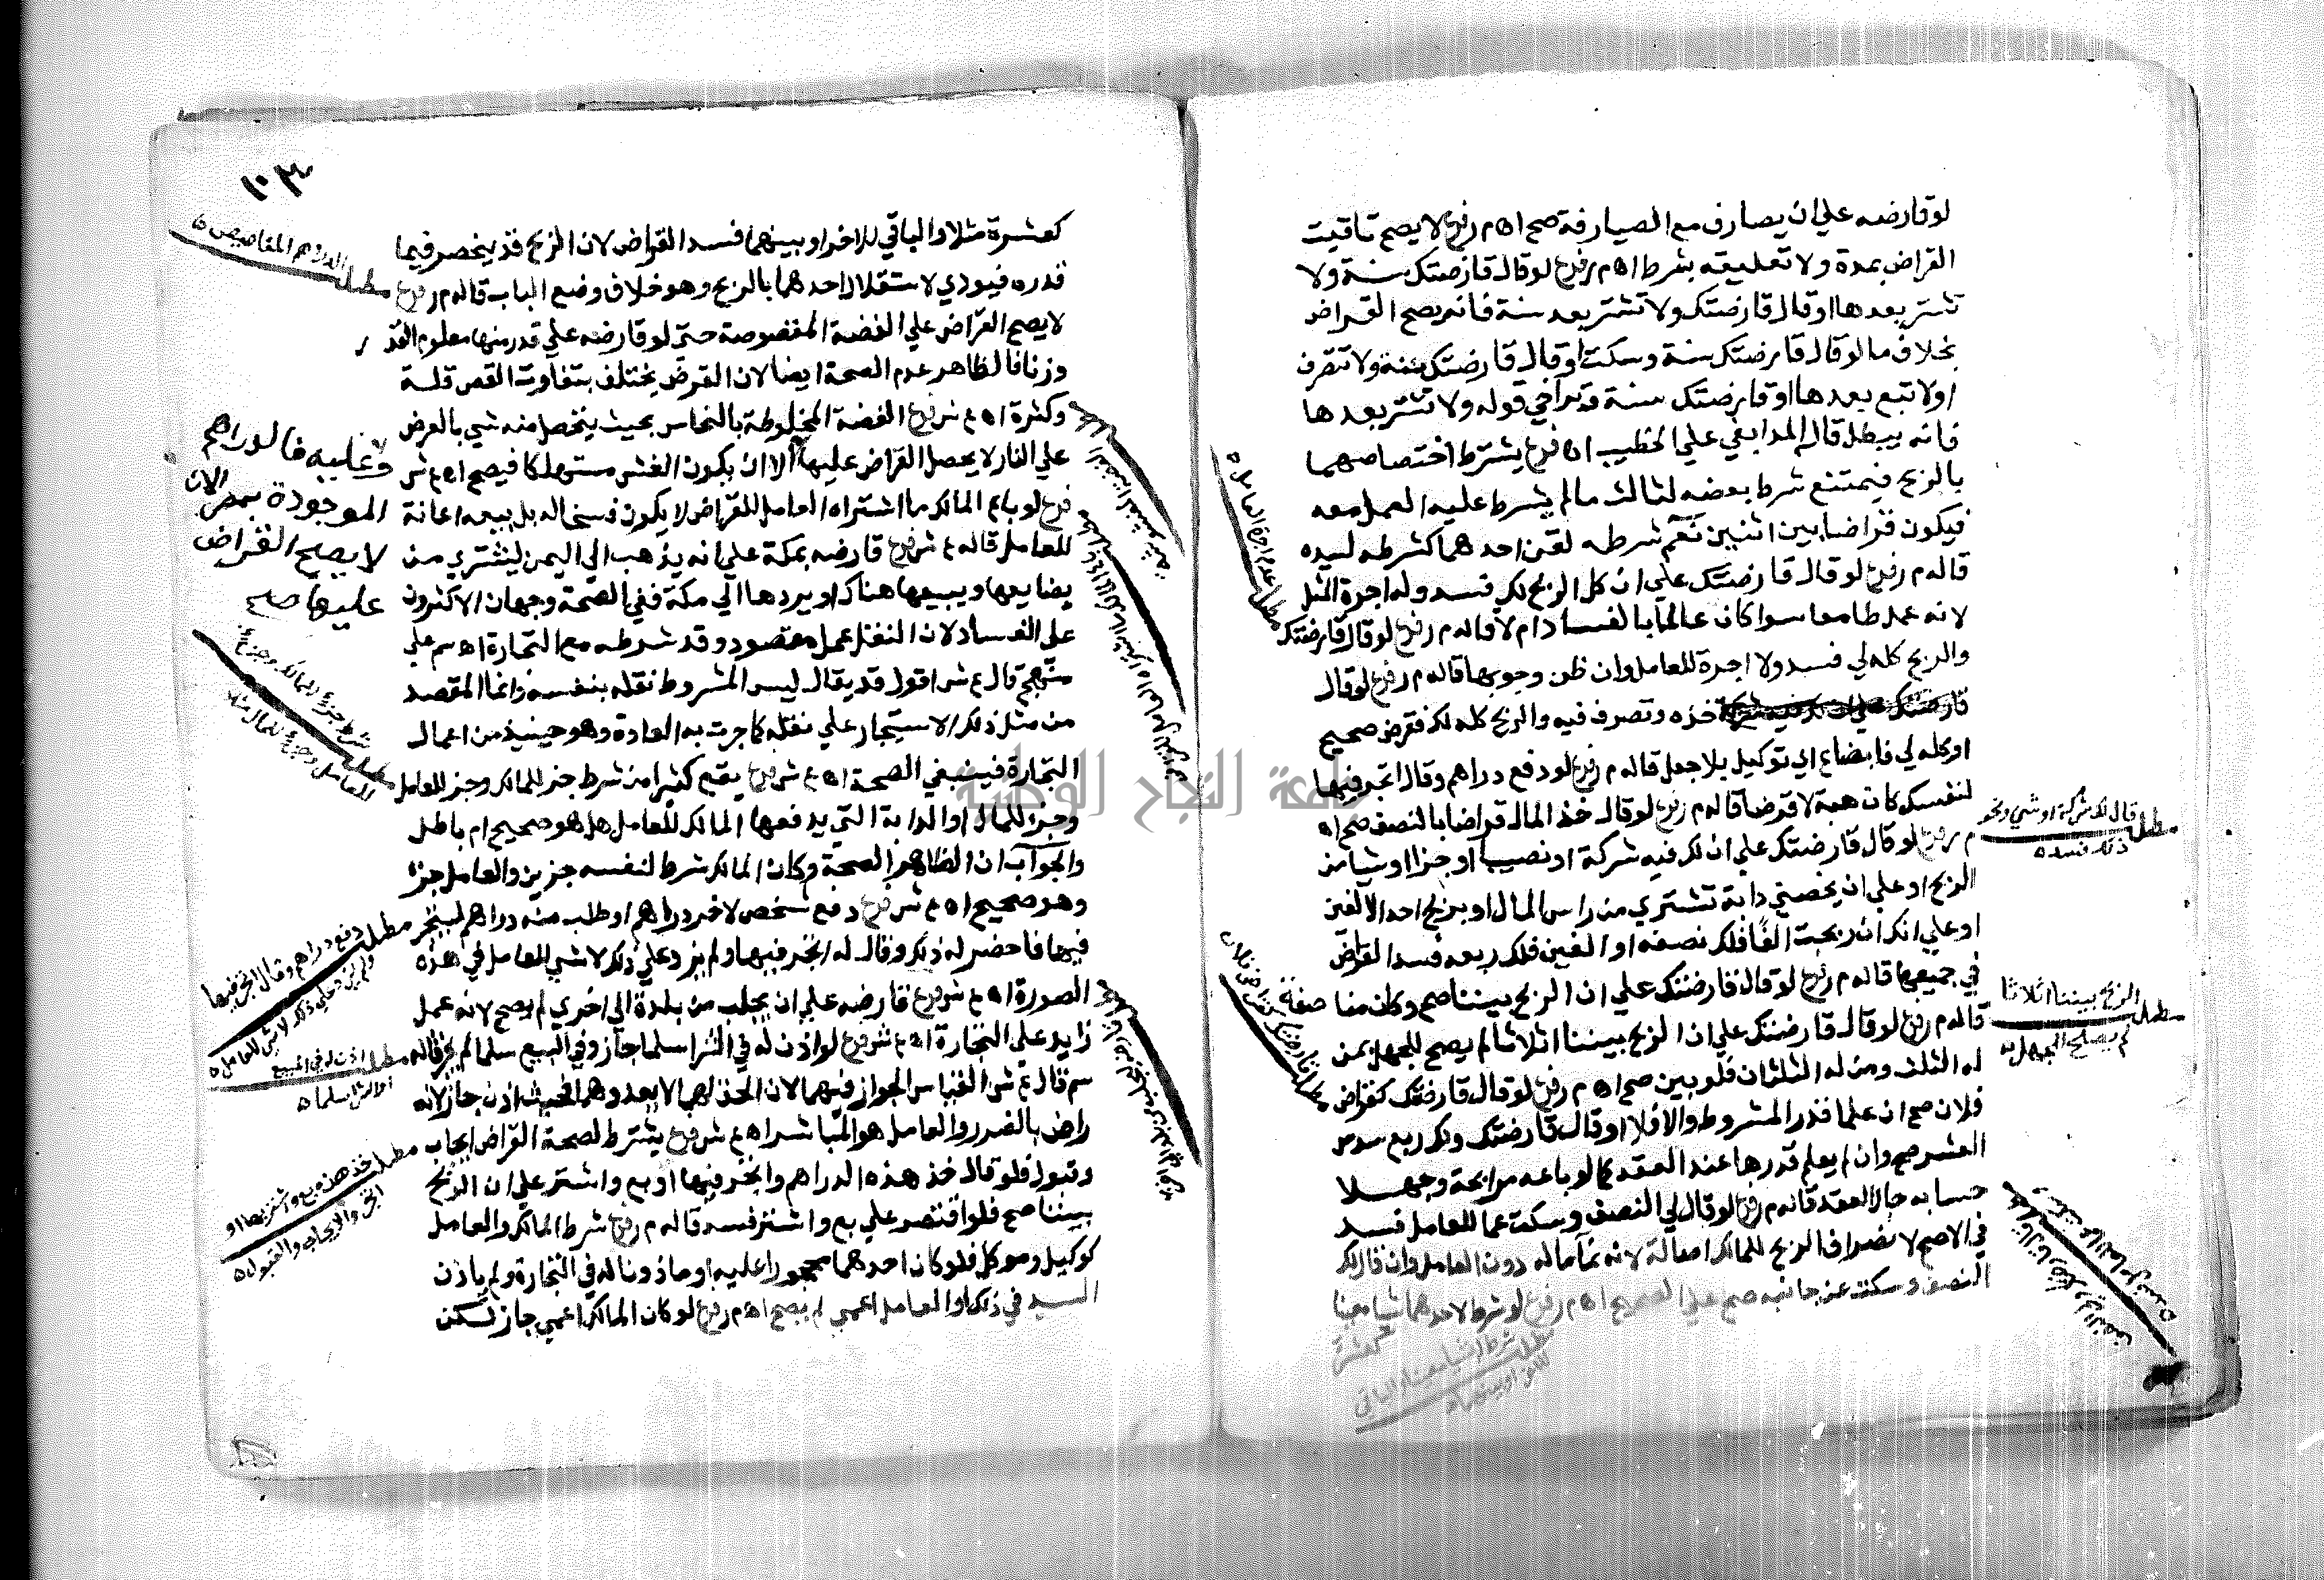 لو قارضه علي ان يصارف مع الصيارفة صح اه م ر فرع لا يصح تاقيت
القراض بمدة ولا تعليقه بشرط اه م ر فرع لو قال قارضتك سنة ولا
تشتر بعدها او قال قارضتك ولا تشتر بعد سنة فانه يصح القراض
بخلاف ما لو قال قارضتك سنة وسكت او قال قارضتك سنة ولا تتصرف
او لا تبع بعدها او قارضتك سنة قد تراخي قوله ولا تشتر بعدها
فانه يبطل قال المدابغي علي الخطيب اه فرع يشترط اختصاصهما
بالربح فيمتنع شرط بعضه لثالث ما لم يشرط عليه العمل معه
فيكون قراضا بين اثنين نعم شرطه لقن احدهما كشرطه لسيده
قاله م ر فرع لو قال قارضتك علي ان كل الربح لك فسد وله اجرة المثل
لانه عمل طامعا سوا كان عالما بالفساد ام لا قاله م ر فرع لو قال قارضتك
والربح كله لي فسد ولا اجرة للعامل وان ظن وجوبها قاله م ر فرع لو قال
قارضتك خذه وتصرف فيه والربح كله لك فقرض صحيح
او كله لي فابضاع اي توكيل بلا جعل قاله م ر فرع لو دفع دراهم وقال اتجر فيها
لنفسك كانت هبة لا قرضا قاله م ر فرع لو قال خذ المال قراضا بالنصف صح اه
م ر فرع لو قال قارضتك علي ان لك فيه شركة او نصيبا او جزا او شيا من
الربح او علي ان يخصني دابة تشتري من راس المال او بربح احد الالفين
او علي انك ان ربحت الفا فلك نصفه او الفين فلك ربعه فسد القراض
في جميعها قاله م ر فرع لو قال قارضتك علي ان الربح بيننا صح وكان مناصفة
قاله م ر فرع لو قال قارضتك علي ان الربح بيننا اثلاثا لم يصح للجهل بمن
له الثلث ومن له الثلثان فلو بين صح اه م ر فرع لو قال قارضتك كقراض
فلان صح ان علما قدر المشروط والا فلا او قال قارضتك ولك ربع سدس
العشر صح وان لم يعلم قدرها عند العقد كما لو باعه مرابحة وجهلا
حسابه حال العقد قاله م ر فرع لو قال لي النصف وسكت عما للعامل فسد
في الاصح لانصراف الربح للمالك اصالة لانه نما ماله دون العامل وان قال لك
النصف وسكت عن جانبه صح علي الصحيح اه م ر فرع لو شرط لاحدهما شيا معينا
كعشرة
مطلب شرط شيا معينا والباقي
للاخر او بينهما
مطلب عدم اجرة العامل
مطلب قال لك شركة او شي ونحو
ذلك فسد
مطلب الربح بيننا اثلاثا
لم يصلح للجهل
مطلب قارضتك كقراض فلان
١٠٣
كعشرة مثلا والباقي للاخر او بينهما فسد القراض لان الربح قد ينحصر فيما
قدره فيودي لاستقلال احدهما بالربح وهو خلاف وضع الباب قاله م ر فرع
لا يصح القراض علي الفضة المقصوصة حتي لو قارضه علي قدر منها معلوم القدر
وزنا فالظاهر عدم الصحة ايضا لان الغرض يختلف بتفاوت القص قلة
وكثرة اه ع ش فرع الفضة المخلوطة بالنحاس بحيث يتحصل منه شي بالعرض
علي النار لا يحصل القراض عليها الا ان يكون الغش مستهلكا فيصح اه ع ش
فرع لو باع المالك ما اشتراه العامل للقراض لا يكون فسخا له بل بيعه اعانة
للعامل قاله ع ش فرع قارضه بمكة علي انه يذهب الي اليمن ليشتري من
بضايعها ويبيعها هناك او يردها الي مكة ففي الصحة وجهان الاكثرون
علي الفساد لان النقل عمل مقصود وقد شرطه مع التجارة اه سم علي
منهج قال ع ش اقول قد يقال ليس المشروط نقله بنفسه وانما المقصد
من مثل ذلك الاستيجار علي نقله كما جرت به العادة وهو حينيذ من اعمال
التجارة فينبغي الصحة اه ع ش فرع يقع كثيرا من شرط جز للمالك وجز للعامل
وجز للمال او الدابة التي يدفعها المالك للعامل هل هو صحيح ام باطل
والجواب ان الظاهر الصحة وكان المالك شرط لنفسه جزين وللعامل جزا
وهو صحيح اه ع ش فرع دفع شخص لاخر دراهم او طلب منه دراهم ليتجر
فيها فاحضر له ذلك وقال له اتجر فيها ولم يزد علي ذلك لا شي للعامل في هذه
الصورة اه ع ش فرع قارضه علي ان يجلب من بلدة الي اخري لم يصح لانه عمل
زايد علي التجارة اه ع ش فرع لو اذن له في الشرا سلما جاز وفي البيع سلما لم يجز قاله
سم قال ع ش القياس الجواز فيهما لان الحظ لهما لا يعدوهما فحيث اذن جاز لانه
راض بالضرر والعامل هو المباشر اه ع ش فرع يشترط لصحة القراض ايجاب
وقبول فلو قال خذ هذه الدراهم واتجر فيها او بع واشتر علي ان الربح
بيننا صح فلو اقتصر علي بع واشتر فسد قاله م ر فرع شرط المالك والعامل
كوكيل وموكل فلو كان احدهما محجورا عليه او ماذونا له في التجارة ولم ياذن
السيد في ذلك او العامل اعمي لم يصح اه م ر فرع لو كان المالك اعمي جاز لكن
مطلب الدراهم المقاصيص
وعليه فالدراهم
الموجودة بمصر الان
لا يصح القراض
عليها صح
مطلب شرط جزء للمالك وجزء
للعامل وجزء للمال مثلا
مطلب دفع دراهم وقال اتجر فيها
ولم يزد علي ذلك لا شي للعامل
مطلب اذن له في البيع
او الشرا سلما
مطلب خذ هذه بع واشتر بها او
اتجر والايجاب والقبول
جامعة النجاح الوطنية